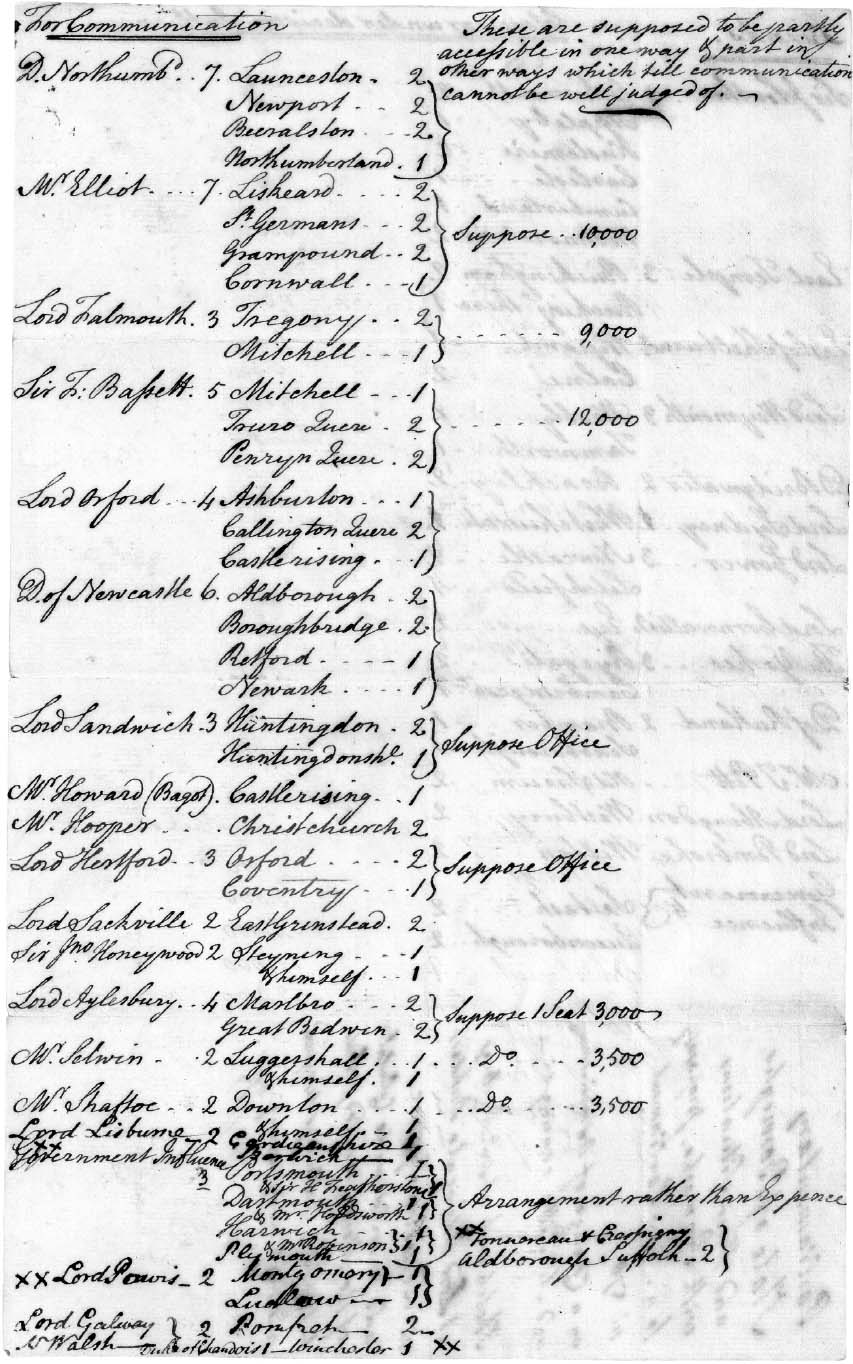 For Communication
These are supposed to be partly
accessible in one way & part in
other ways which till communication
cannot be well judged of.
D. Northumbd .. 7. Launceston - 2
Newport .. 2
Beeralston ... 2
Northumberland . 1
Mr. Elliot .... 7. Liskeard .... 2
St. Germans ... 2
Grampound .. 2
Cornwall ... 1
Suppose .. 10,000
Lord Falmouth . 3 Tregony .. 2
Mitchell ... 1
....... 9,000
Sir F: Bassett . 5 Mitchell ... 1
Truro Quere . 2
Penryn Quere . 2
....... 12,000
Lord Orford ... 4 Ashburton ... 1
Callington Quere 2
Castlerising .. 1
D. of Newcastle 6. Aldborough . 2
Boroughbridge . 2
Retford ..... 1
Newark .... 1
Lord Sandwich - 3 Huntingdon . 2
Huntingdonshe. 1
Suppose Office
Mr. Howard (Bagot) . Castlerising . 1
Mr. Hooper .. . Christchurch 2
Lord Hertford .. 3 Orford .... 2
Coventry ... 1
Suppose Office
Lord Sackville 2 East Grinstead . 2
Sir Jno Honeywood 2 Steyning ... 1
& himself ... 1
Lord Aylesbury .. 4 Marlbro ... 2
Great Bedwin . 2
Suppose 1 Seat 3,000
Mr. Selwin - . 2 Luggershall . 1 .... Do .... 3,500
& himself . 1
Mr. Shaftoe .. 2 Downton .. 1 .... Do .... 3,500
& himself - 1
Lord Lisburne - 2 Cardiganshire 1
Berwick - 1
Government Influence 3 Portsmouth .. 1
& Sir H Featherstone 1
Dartmouth 1
& Mr. Holdsworth 1
Harwich - 1
& Mr Robinson 1
Plymouth 1
Arrangement rather than Expence
xx Fonnereau & Crespigny
Aldborough Suffolk - 2
xx Lord Powis - 2 Montgomery - 1
Ludlow - 1
Lord Galway
Mr Walsh 2 Pomfret - 2
Duke of Chandois 1 - Winchester 1 xx